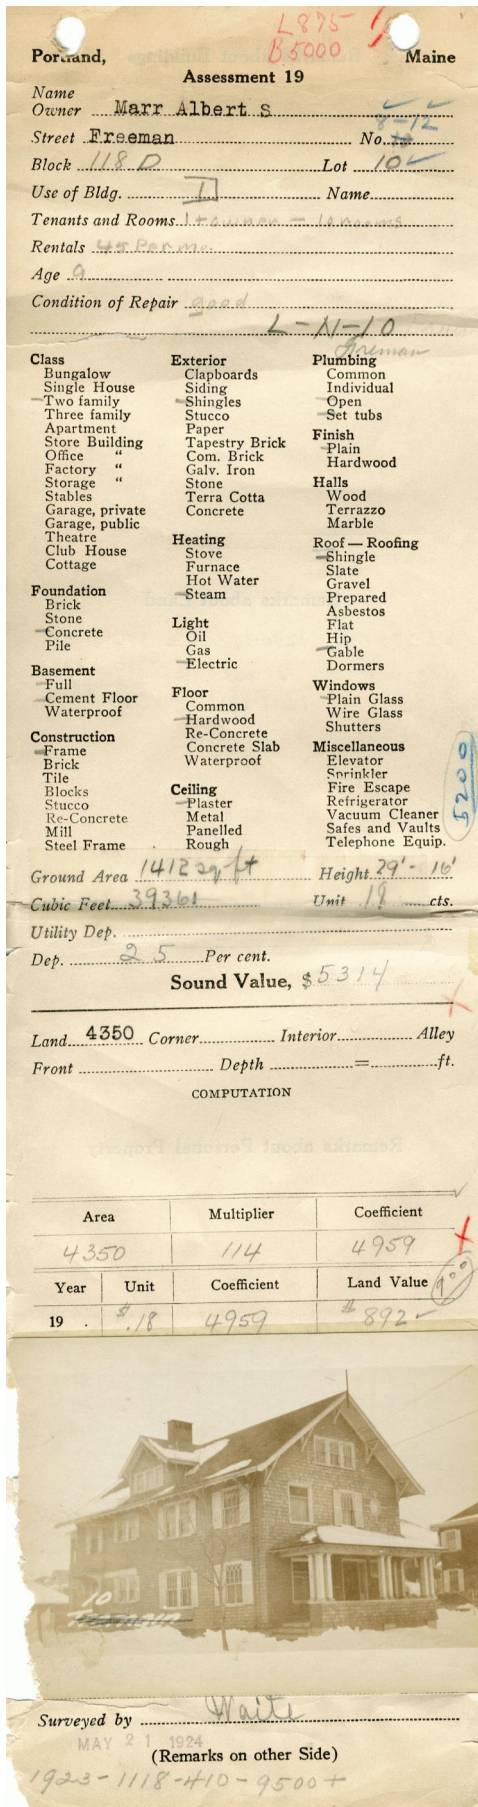 L875
B5000
Portland, Maine
Assessment 19
Name
Owner Marr Albert S
8-12
Street Freeman No.
Block 118 D Lot 10
Use of Bldg. 1 Name
Tenants and Rooms 1 + owner - 10 rooms
Rentals 45 Per mo.
Age 9
Condition of Repair good
L-N-10
Freeman
Class
Bungalow
Single House
Two family
Three family
Apartment
Store Building
Office "
Factory "
Storage "
Stables
Garage, private
Garage, public
Theatre
Club House
Cottage
Foundation
Brick
Stone
Concrete
Pile
Basement
Full
Cement Floor
Waterproof
Construction
Frame
Brick
Tile
Blocks
Stucco
Re-Concrete
Mill
Steel Frame
Exterior
Clapboards
Siding
Shingles
Stucco
Paper
Tapestry Brick
Com. Brick
Galv. Iron
Stone
Terra Cotta
Concrete
Heating
Stove
Furnace
Hot Water
Steam
Light
Oil
Gas
Electric
Floor
Common
Hardwood
Re-Concrete
Concrete Slab
Waterproof
Ceiling
Plaster
Metal
Panelled
Rough
Plumbing
Common
Individual
Open
Set tubs
Finish
Plain
Hardwood
Halls
Wood
Terrazzo
Marble
Roof — Roofing
Shingle
Slate
Gravel
Prepared
Asbestos
Flat
Hip
Gable
Dormers
Windows
Plain Glass
Wire Glass
Shutters
Miscellaneous
Elevator
Sprinkler
Fire Escape
Refrigerator
Vacuum Cleaner
Safes and Vaults
Telephone Equip.
5200
Ground Area 1412 sq ft Height 29' - 16'
Cubic Feet 39361 Unit 18 cts.
Utility Dep.
Dep. 25 Per cent.
Sound Value, $5314
Land 4350 Corner Interior Alley
Front Depth = ft.
COMPUTATION
Area Multiplier Coefficient
4350 114 4959
Year Unit Coefficient Land Value
900
19 . $.18 4959 $892
10
Surveyed by Waite
MAY 21 1924
(Remarks on other Side)
1923-1118-410-9500+